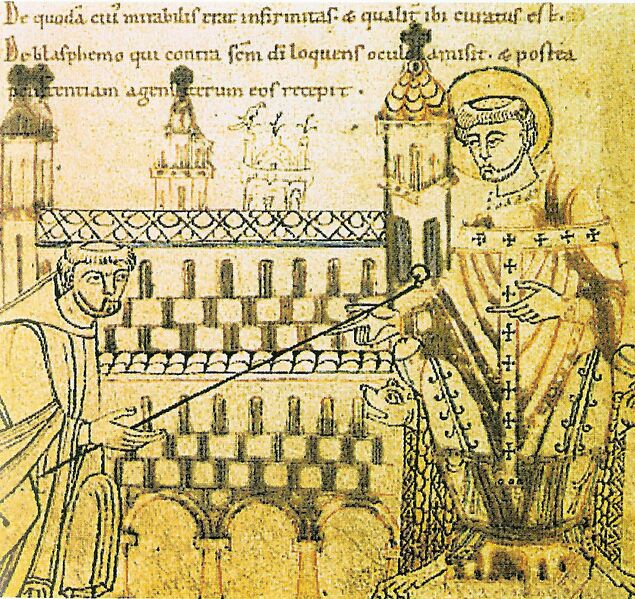 De quodā cui' mirabilis erat infirmitas. & qualit̄ ibi curatus est.
De blasphemo qui contra sc̄m dī loquens ocul amisit. & postea
penitentiam agens iterum eos recepit.